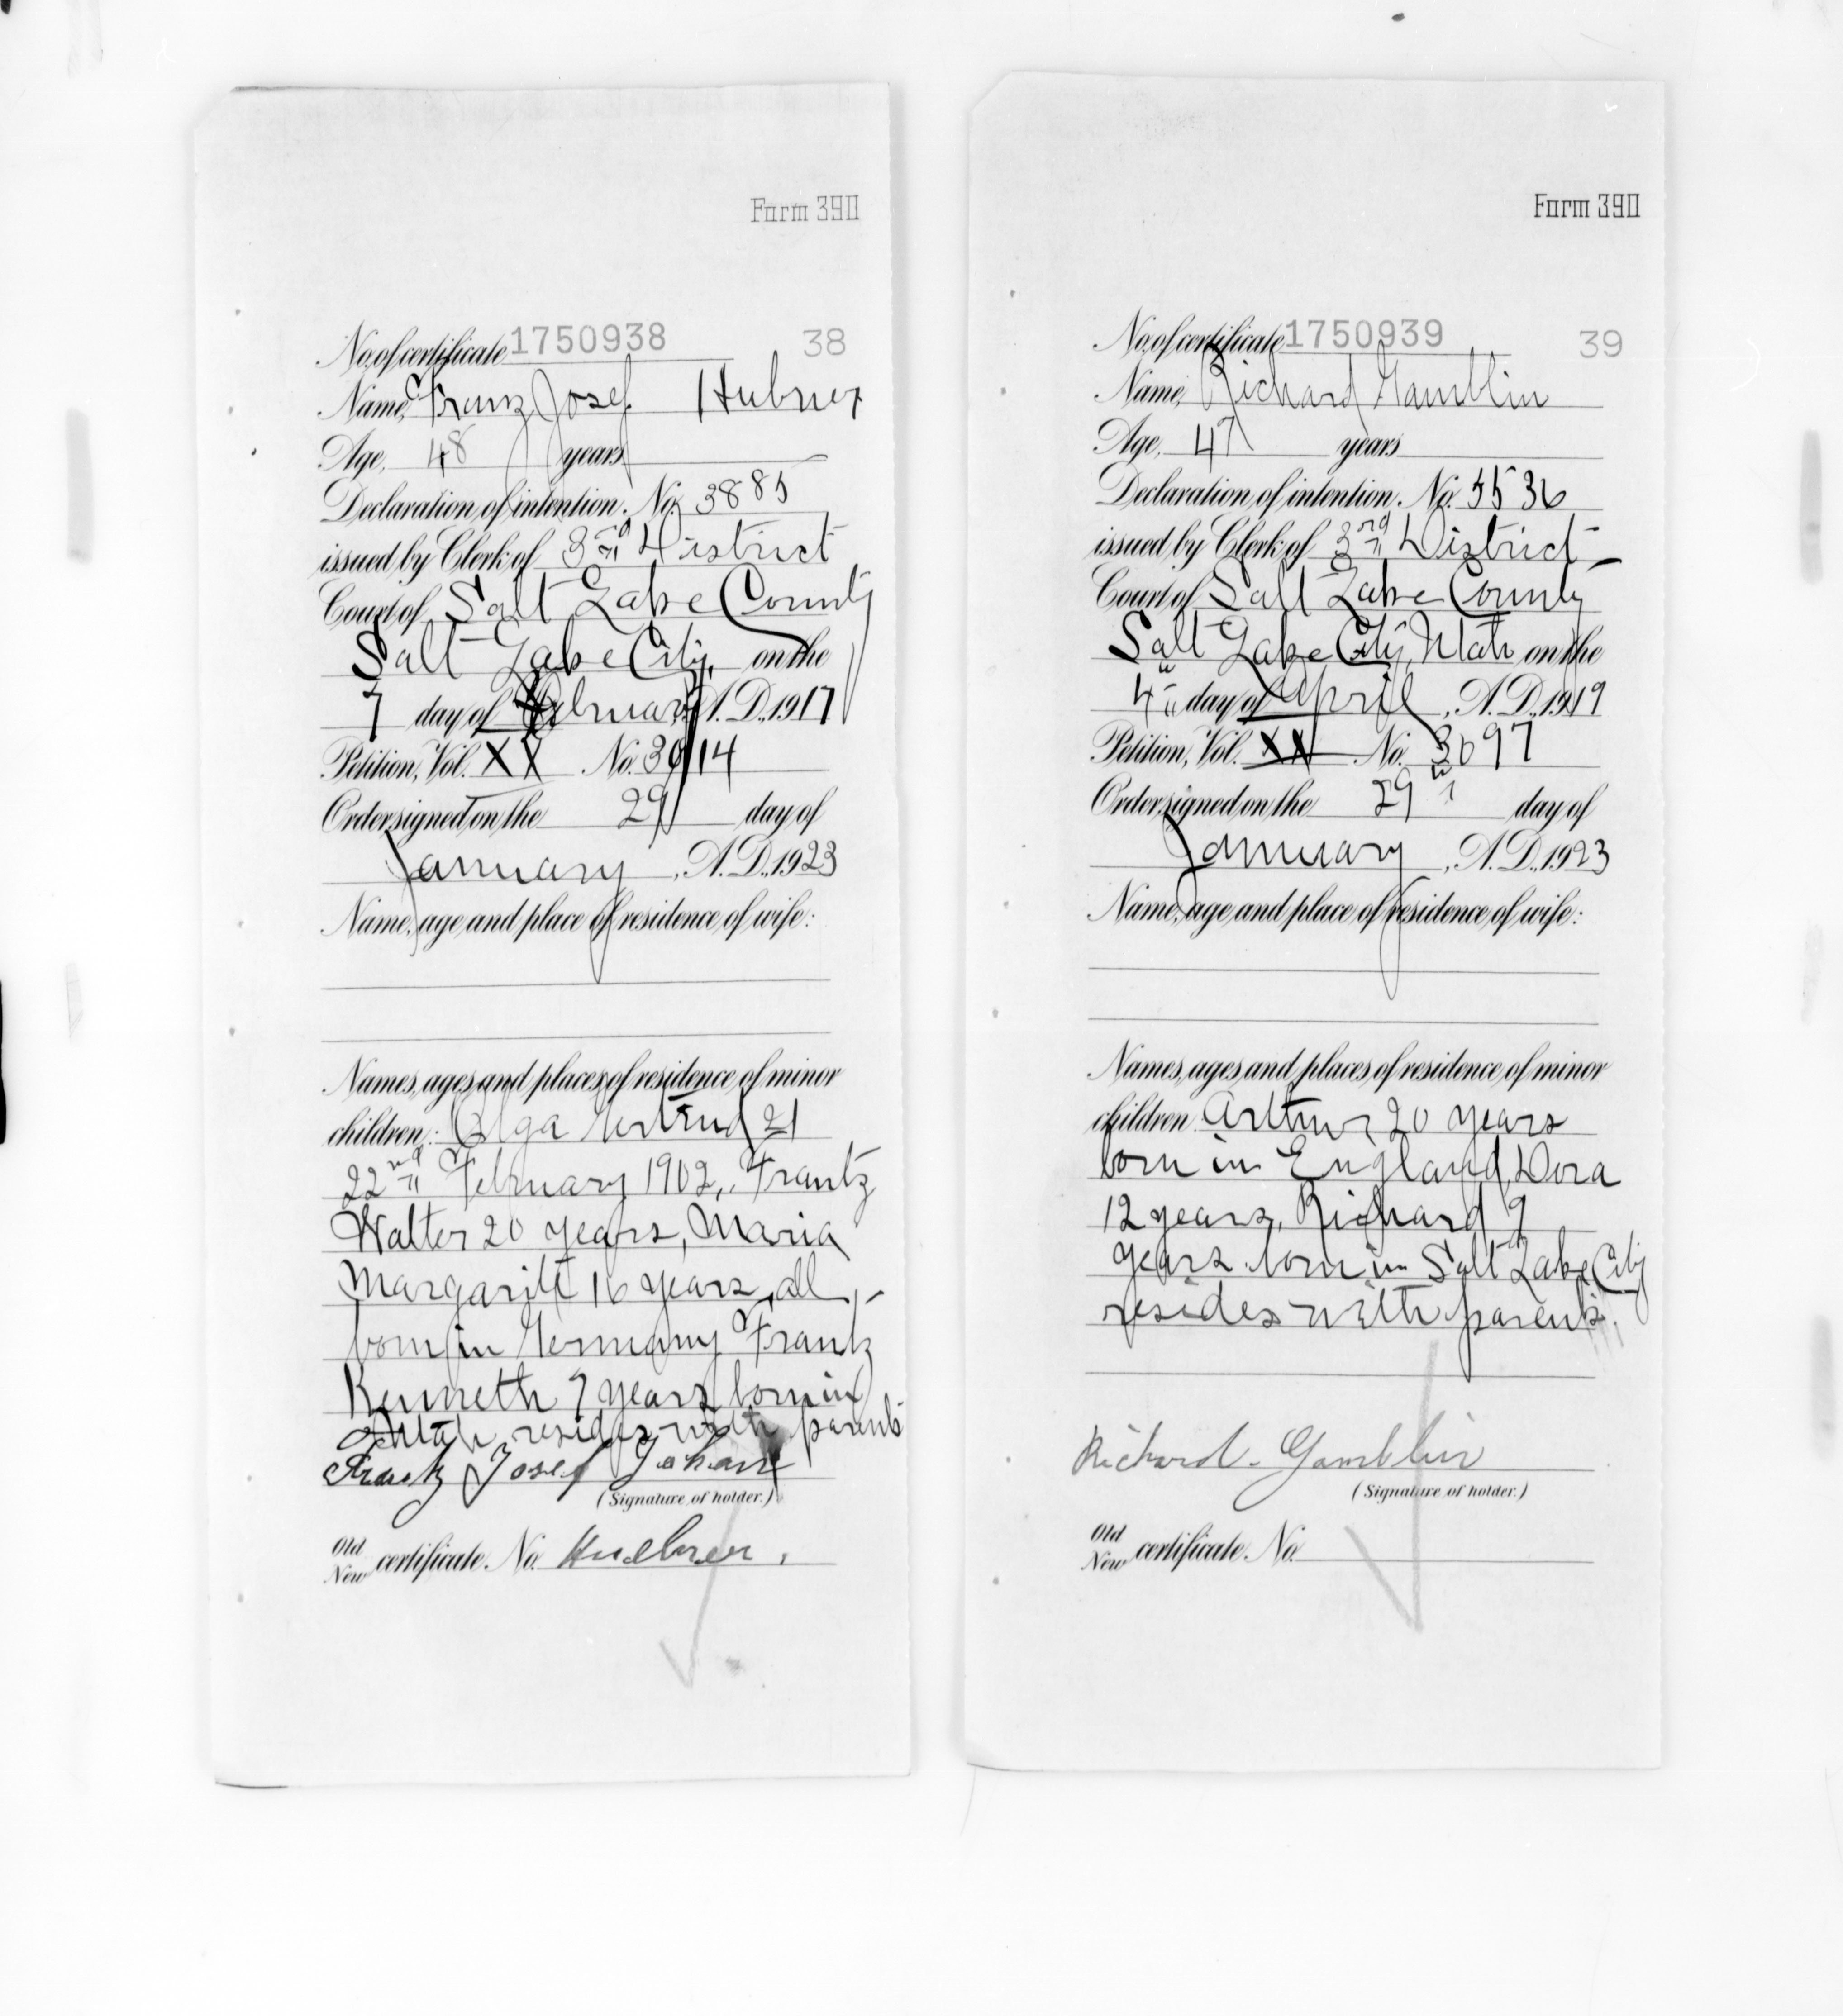 Form 390
No. of certificate 1750938 38
Name, Franz Josef Hubner
Age, 48 years
Declaration of intention, No. 3885
issued by Clerk of 3rd District
Court of Salt Lake County
Salt Lake City, on the
7 day of February, A.D., 1917
Petition, Vol. XX No. 14
Order signed on the 29 day of
January, A.D., 1923
Name, age and place of residence of wife:
Names, ages and places of residence of minor
children: Olga Gertrud 21
22nd February 1902, Frantz
Walter 20 years, Maria
Margaritt 16 years, all
born in Germany Frank
Kenneth 7 years born in
Utah resides with parents
Frantz Josef Johann
(Signature of holder.)
Old
New certificate No. Huebner.
Form 390
No. of certificate 1750939 39
Name, Richard Gamblin
Age, 47 years
Declaration of intention, No. 5536
issued by Clerk of 3rd District
Court of Salt Lake County
Salt Lake City, Utah on the
4th day of April, A.D., 1919
Petition, Vol. XX No. 3097
Order signed on the 29th day of
January, A.D., 1923
Name, age and place of residence of wife:
Names, ages and places of residence of minor
children Arthur 20 years
born in England, Dora
12 years, Richard 9
years born in Salt Lake City
resides with parents.
Richard Gamblin
(Signature of holder.)
Old
New certificate No.